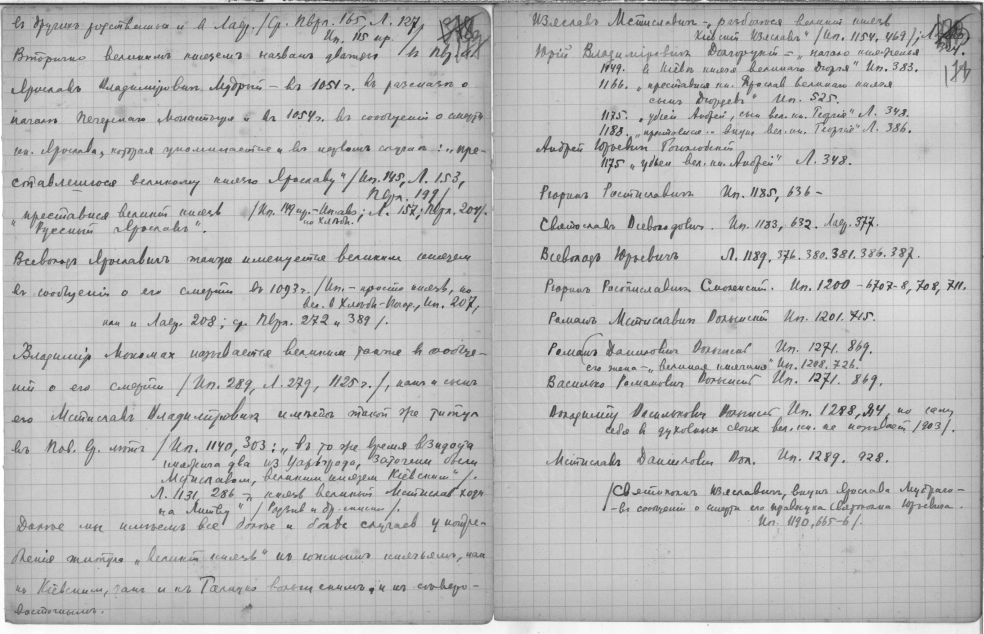 въ другихъ родственныхъ и въ Лавр. /Ср. Пврл. 165, Л. 127,
Ип. 115 пр.
Вторично великимъ княземъ названъ дважды
Ярославъ Владиміровичъ Мудрый – въ 1051 г. въ разсказѣ о
началѣ Печерскаго монастыря и въ 1054 г. въ сообщеніи о смерти
кн. Ярослава, которая упоминается и въ первомъ случаѣ: „пре-
ставльшюся великому князю Ярославу" /Ип. 145, Л. 153,
Пврл. 191/
„преставися великій князь /Ип. 149 пр. – ; Л. 157; Пврл. 204/.
Русскый Ярославъ".
по Хлѣбн.
Всеволодъ Ярославичъ также именуется великимъ княземъ
въ сообщеніи о его смерти въ 1093 г. /Ип. – просто князь, но
вел. въ Хлѣбн.-Погод., Ип. 207,
какъ и Лавр. 208; ср. Пврл. 272 и 389/.
Владиміръ Мономахъ называется великимъ также въ сообще-
ніи о его смерти /Ип. 289, Л. 279, 1125 г./, какъ и сынъ
его Мстиславъ Владиміровичъ имѣетъ такой же титулъ
въ Пов. вр. лѣтъ /Ип. 1140, 303: „въ то же время взидоста
княжича два изъ Царьгорода, заточени были
Мстиславомъ, великимъ княземъ Кіевскимъ"/.
Л. 1131, 286 – „князь великій Мстиславъ ходи
на Литву" /
Далѣе мы имѣемъ все болѣе и болѣе случаевъ употре-
бленія титула „великій князь" къ южнымъ князьямъ, какъ
къ Кіевскимъ, такъ и къ Галицко-волынскимъ, и къ сѣверо-
восточнымъ.
Изяславъ Мстиславичъ – „разболѣся великій князь
Кіевскій Изяславъ" /Ип. 1154, 469/; Л.
Юрій Владиміровичъ Долгорукій – „начало княженія
1149. в Кіевѣ князя великаго Дюргя" Ип. 383.
1166. „преставися кн. Ярославъ великаго князя
сынъ Дюрдевъ" Ип. 525.
1175. „убьенъ Андрей, сынъ вел. кн. Георгія" Л. 348.
1188. „преставися .. внукъ вел. кн. Георгія" Л. 386.
Андрей Юрьевичъ Боголюбскій
1175 „убьенъ вел. кн. Андрей" Л. 348.
Рюрикъ Ростиславичъ Ип. 1185, 636 –
Святославъ Всеволодовичъ. Ип. 1183, 632. Лавр. 377.
Всеволодъ Юрьевичъ Л. 1189, 376. 380. 381. 386. 387.
Рюрикъ Ростиславичъ Смоленскій. Ип. 1200 – 6707-8, 708, 711.
Романъ Мстиславичъ Волынскій Ип. 1201. 715.
Романъ Даниловичъ Волынскій Ип. 1271. 869.
его жена – „великая княгиня" Ип. 1208. 726.
Василько Романовичъ Волынскій Ип. 1271. 869.
Владиміръ Васильковичъ Волынскій Ип. 1288, 914, но самъ
себя въ духовныхъ своихъ вел. кн. не называетъ /903/.
Мстиславъ Даниловичъ Вол. Ип. 1289. 928.
/Святополкъ Изяславичъ, внукъ Ярослава Мудраго –
– въ сообщеніи о смерти его правнука Святополка Юрьевича.
Ип. 1190, 665-6/.